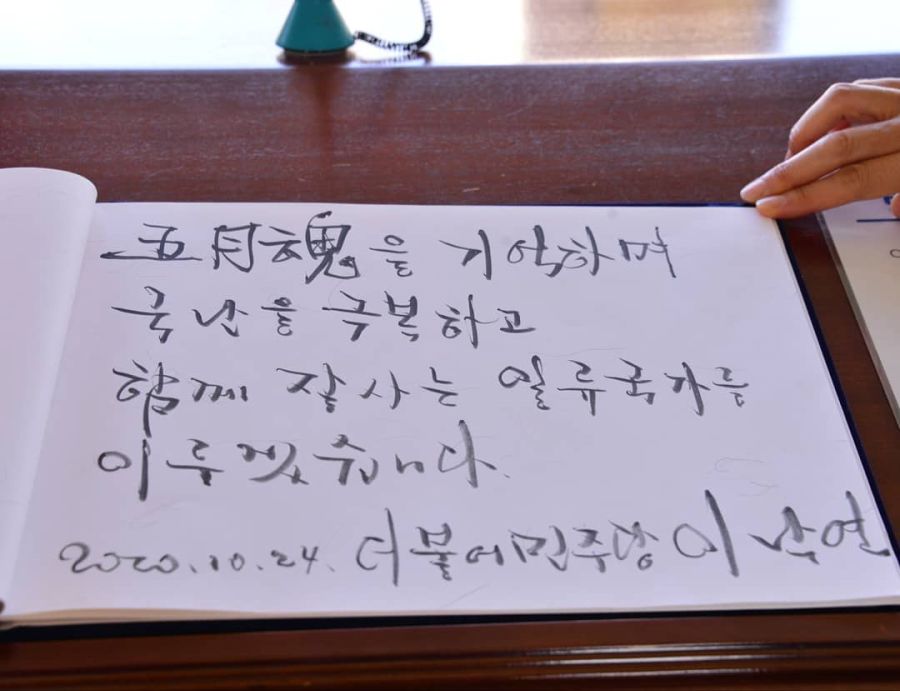 五月魂을 기억하며
국난을 극복하고
함께 잘사는 일류국가를
이루겠습니다.
2020.10.24. 더불어민주당 이낙연